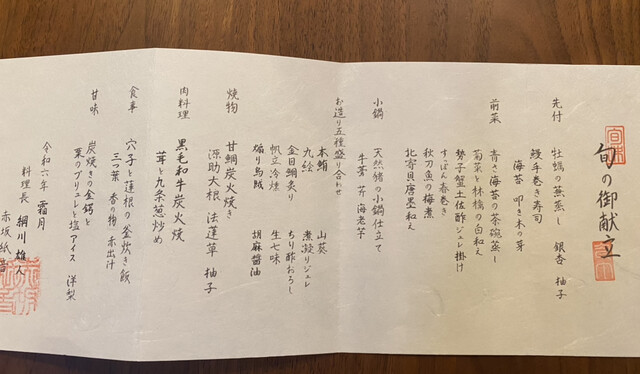 旬の御献立
先付
牡蠣の蕪蒸し 銀杏 柚子
鰻手巻き寿司
海苔 叩き木の芽
前菜
青さ海苔の茶碗蒸し
菊菜と林檎の白和え
勢子蟹土佐酢ジュレ掛け
すっぽん春巻き
秋刀魚の梅煮
北寄貝唐墨和え
小鍋
天然猪の小鍋仕立て
牛蒡 芹 海老芋
お造り五種盛り合わせ
本鮪 山葵
九絵 煮凝りジュレ
金目鯛炙り ちり酢おろし
帆立冷燻 生七味
煽り烏賊 胡麻醤油
焼物
甘鯛炭火焼き
源助大根 法蓮草 柚子
肉料理
黒毛和牛炭火焼
茸と九条葱炒め
食事
穴子と蓮根の釜炊き飯
三つ葉 香の物 赤出汁
甘味
炭焼きの金鍔と
栗のブリュレと塩アイス 洋梨
令和六年 霜月
料理長 綱川雄人
赤坂紙音